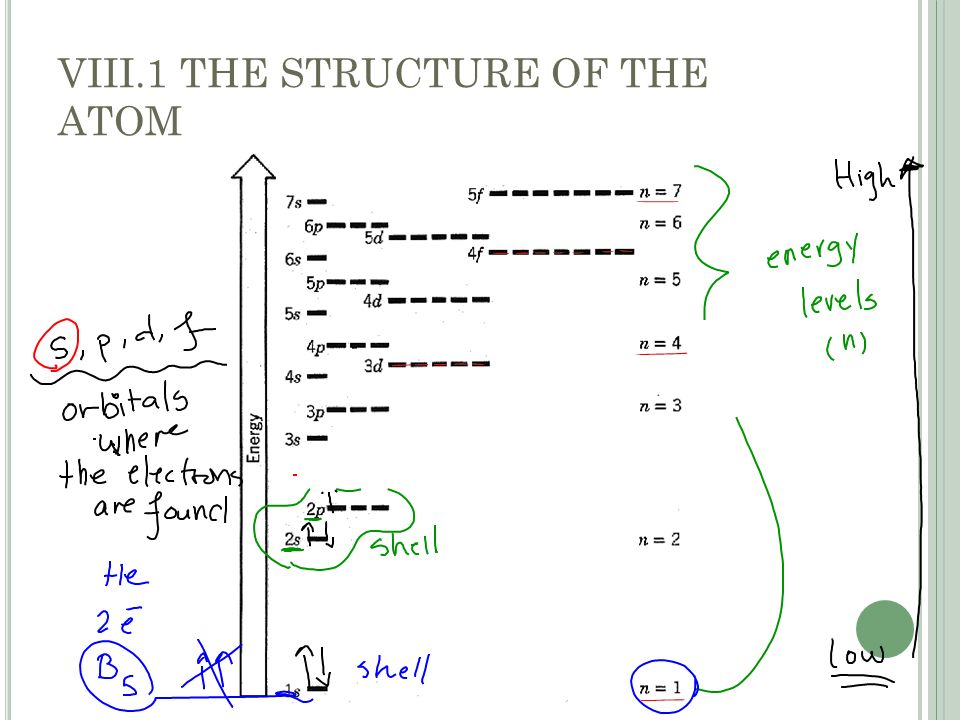 VIII.1 THE STRUCTURE OF THE
ATOM
High
7s
5f
n = 7
6p
5d
n = 6
6s
4f
energy
5p
n = 5
4d
levels
5s
(n)
s, p, d, f
4p
n = 4
4s
3d
orbitals
3p
n = 3
where
3s
Energy
the electrons
are found
2p
2s
shell
n = 2
He
2 e⁻
B
5
shell
Low
1s
n = 1